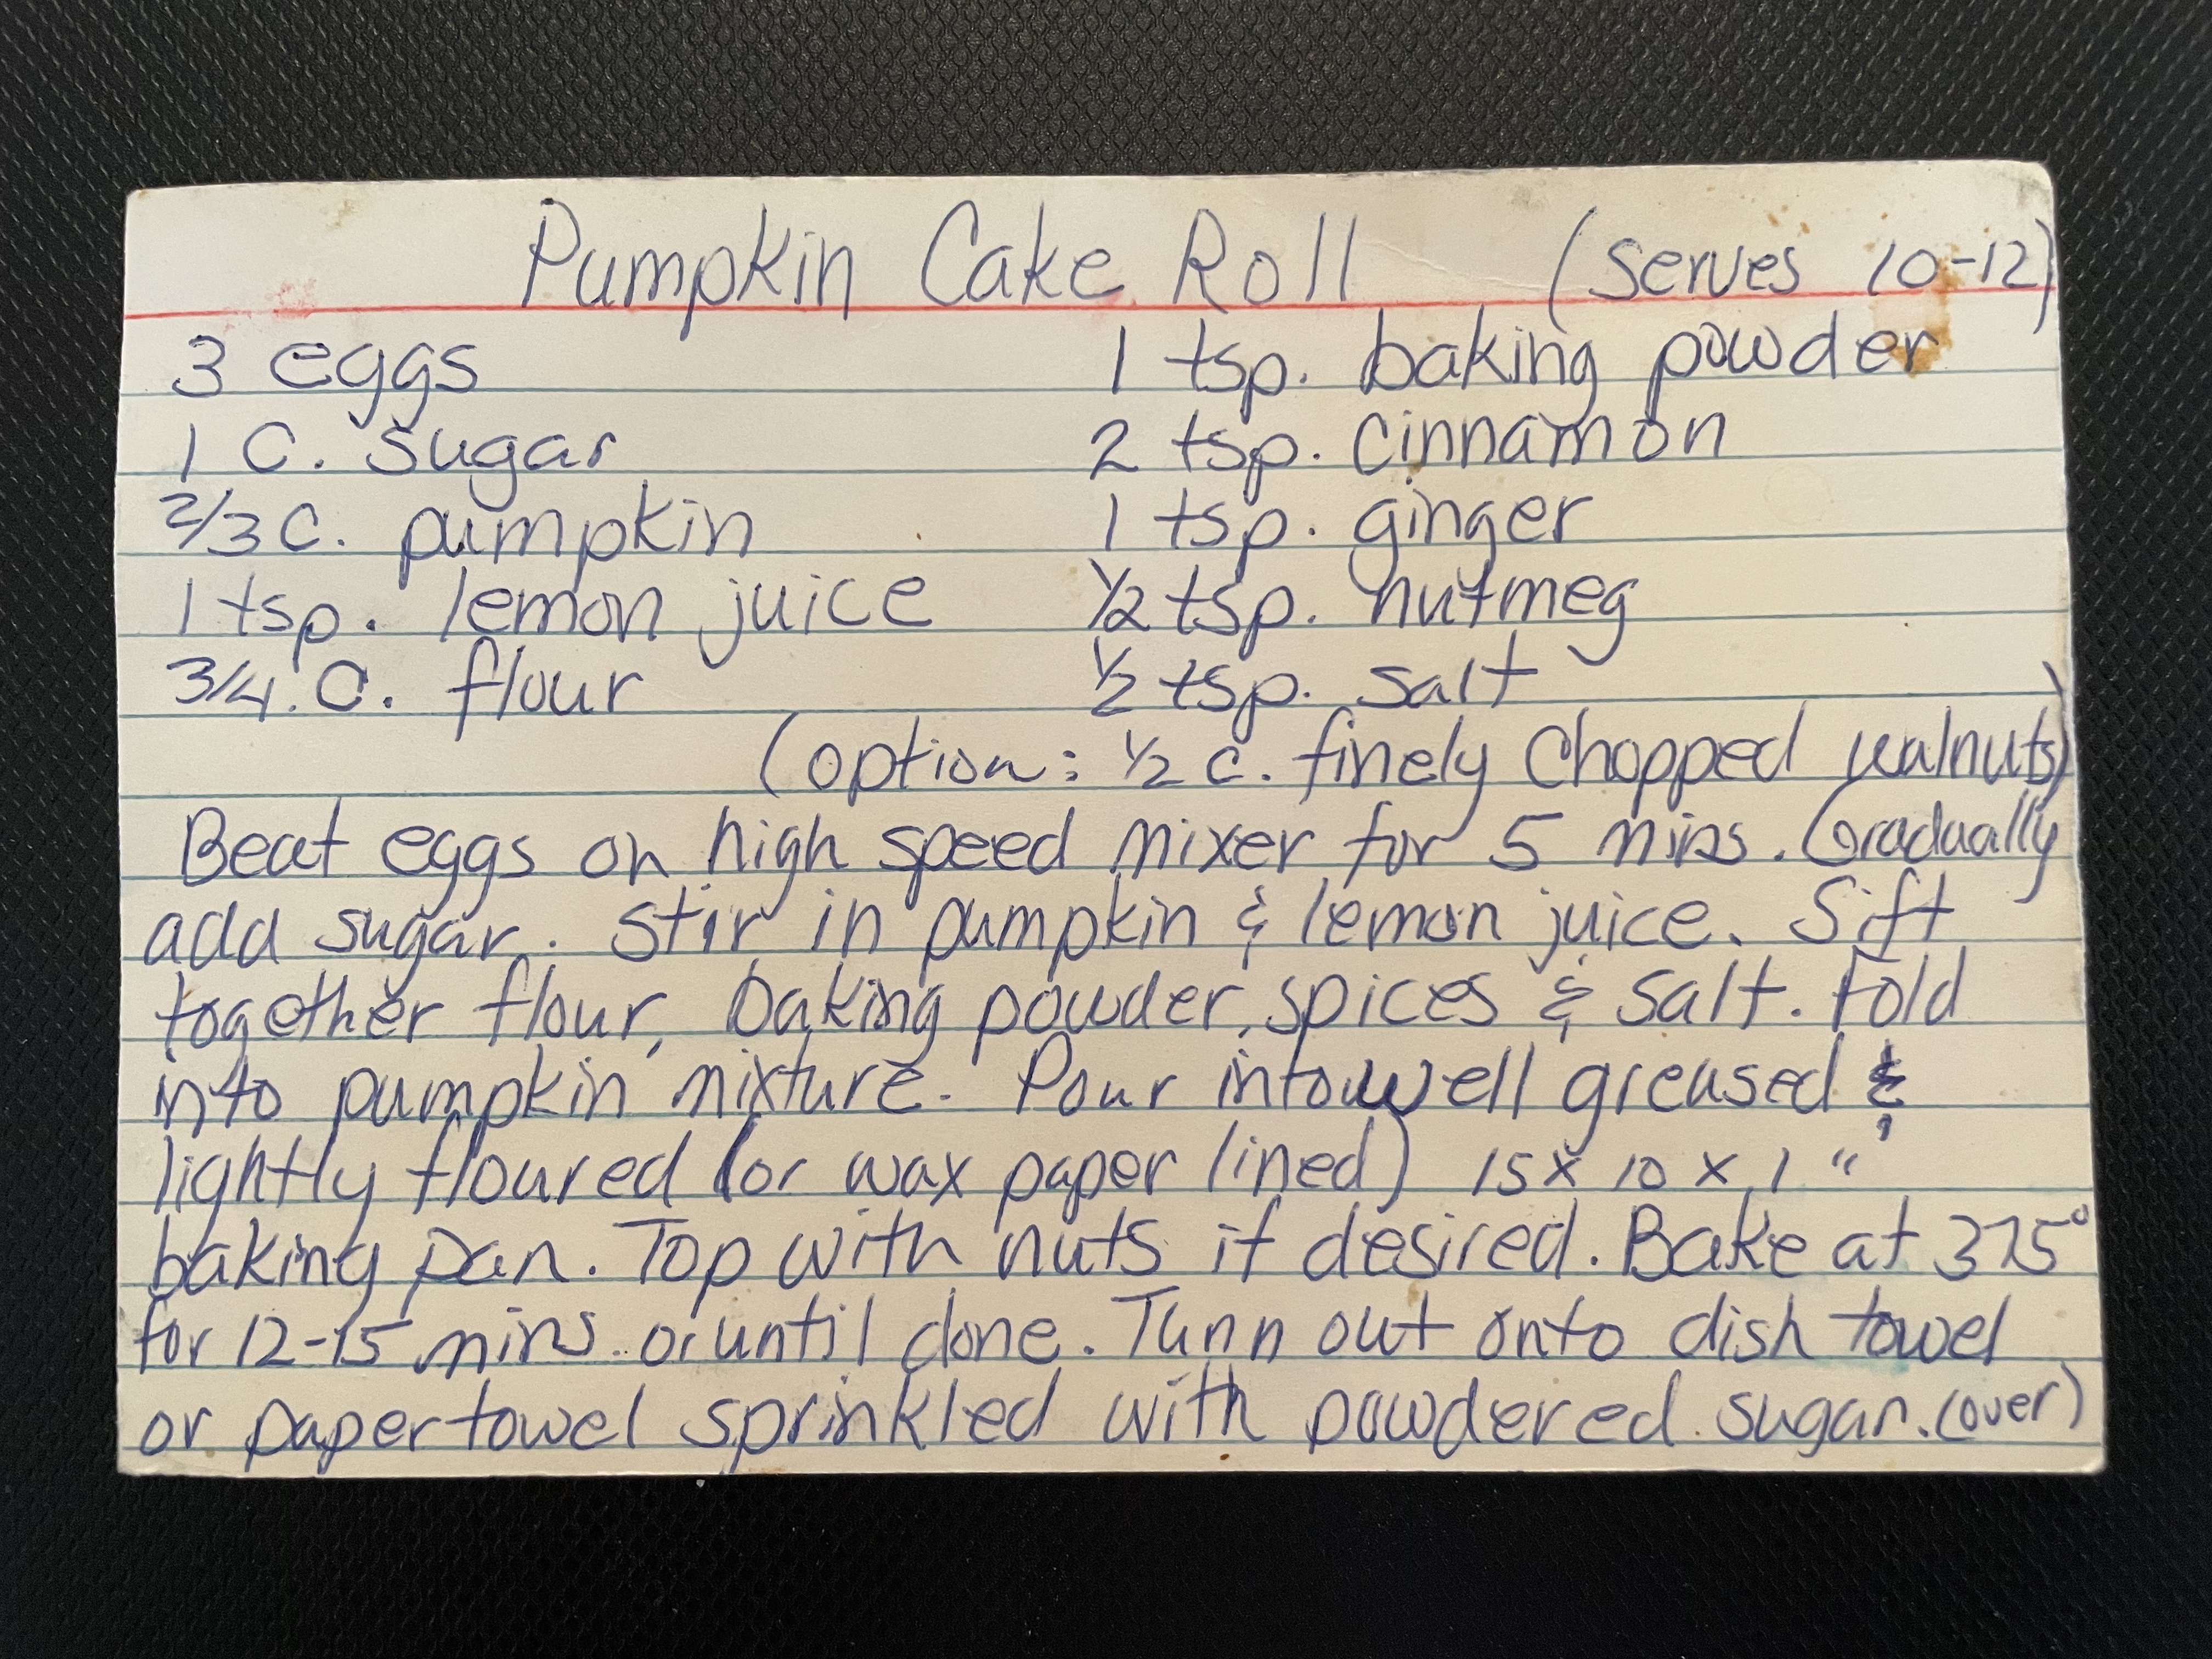 Pumpkin Cake Roll (serves 10-12)
3 eggs 1 tsp. baking powder
1 C. sugar 2 tsp. cinnamon
2/3 C. pumpkin 1 tsp. ginger
1 tsp. lemon juice 1/2 tsp. nutmeg
3/4 C. flour 1/2 tsp. salt
(option: 1/2 c. finely chopped walnuts)
Beat eggs on high speed mixer for 5 mins. Gradually
add sugar. Stir in pumpkin & lemon juice. Sift
together flour, baking powder, spices & salt. Fold
into pumpkin mixture. Pour into well greased &
lightly floured (or wax paper lined) 15 x 10 x 1"
baking pan. Top with nuts if desired. Bake at 375°
for 12-15 mins. or until done. Turn out onto dish towel
or paper towel sprinkled with powdered sugar. (over)